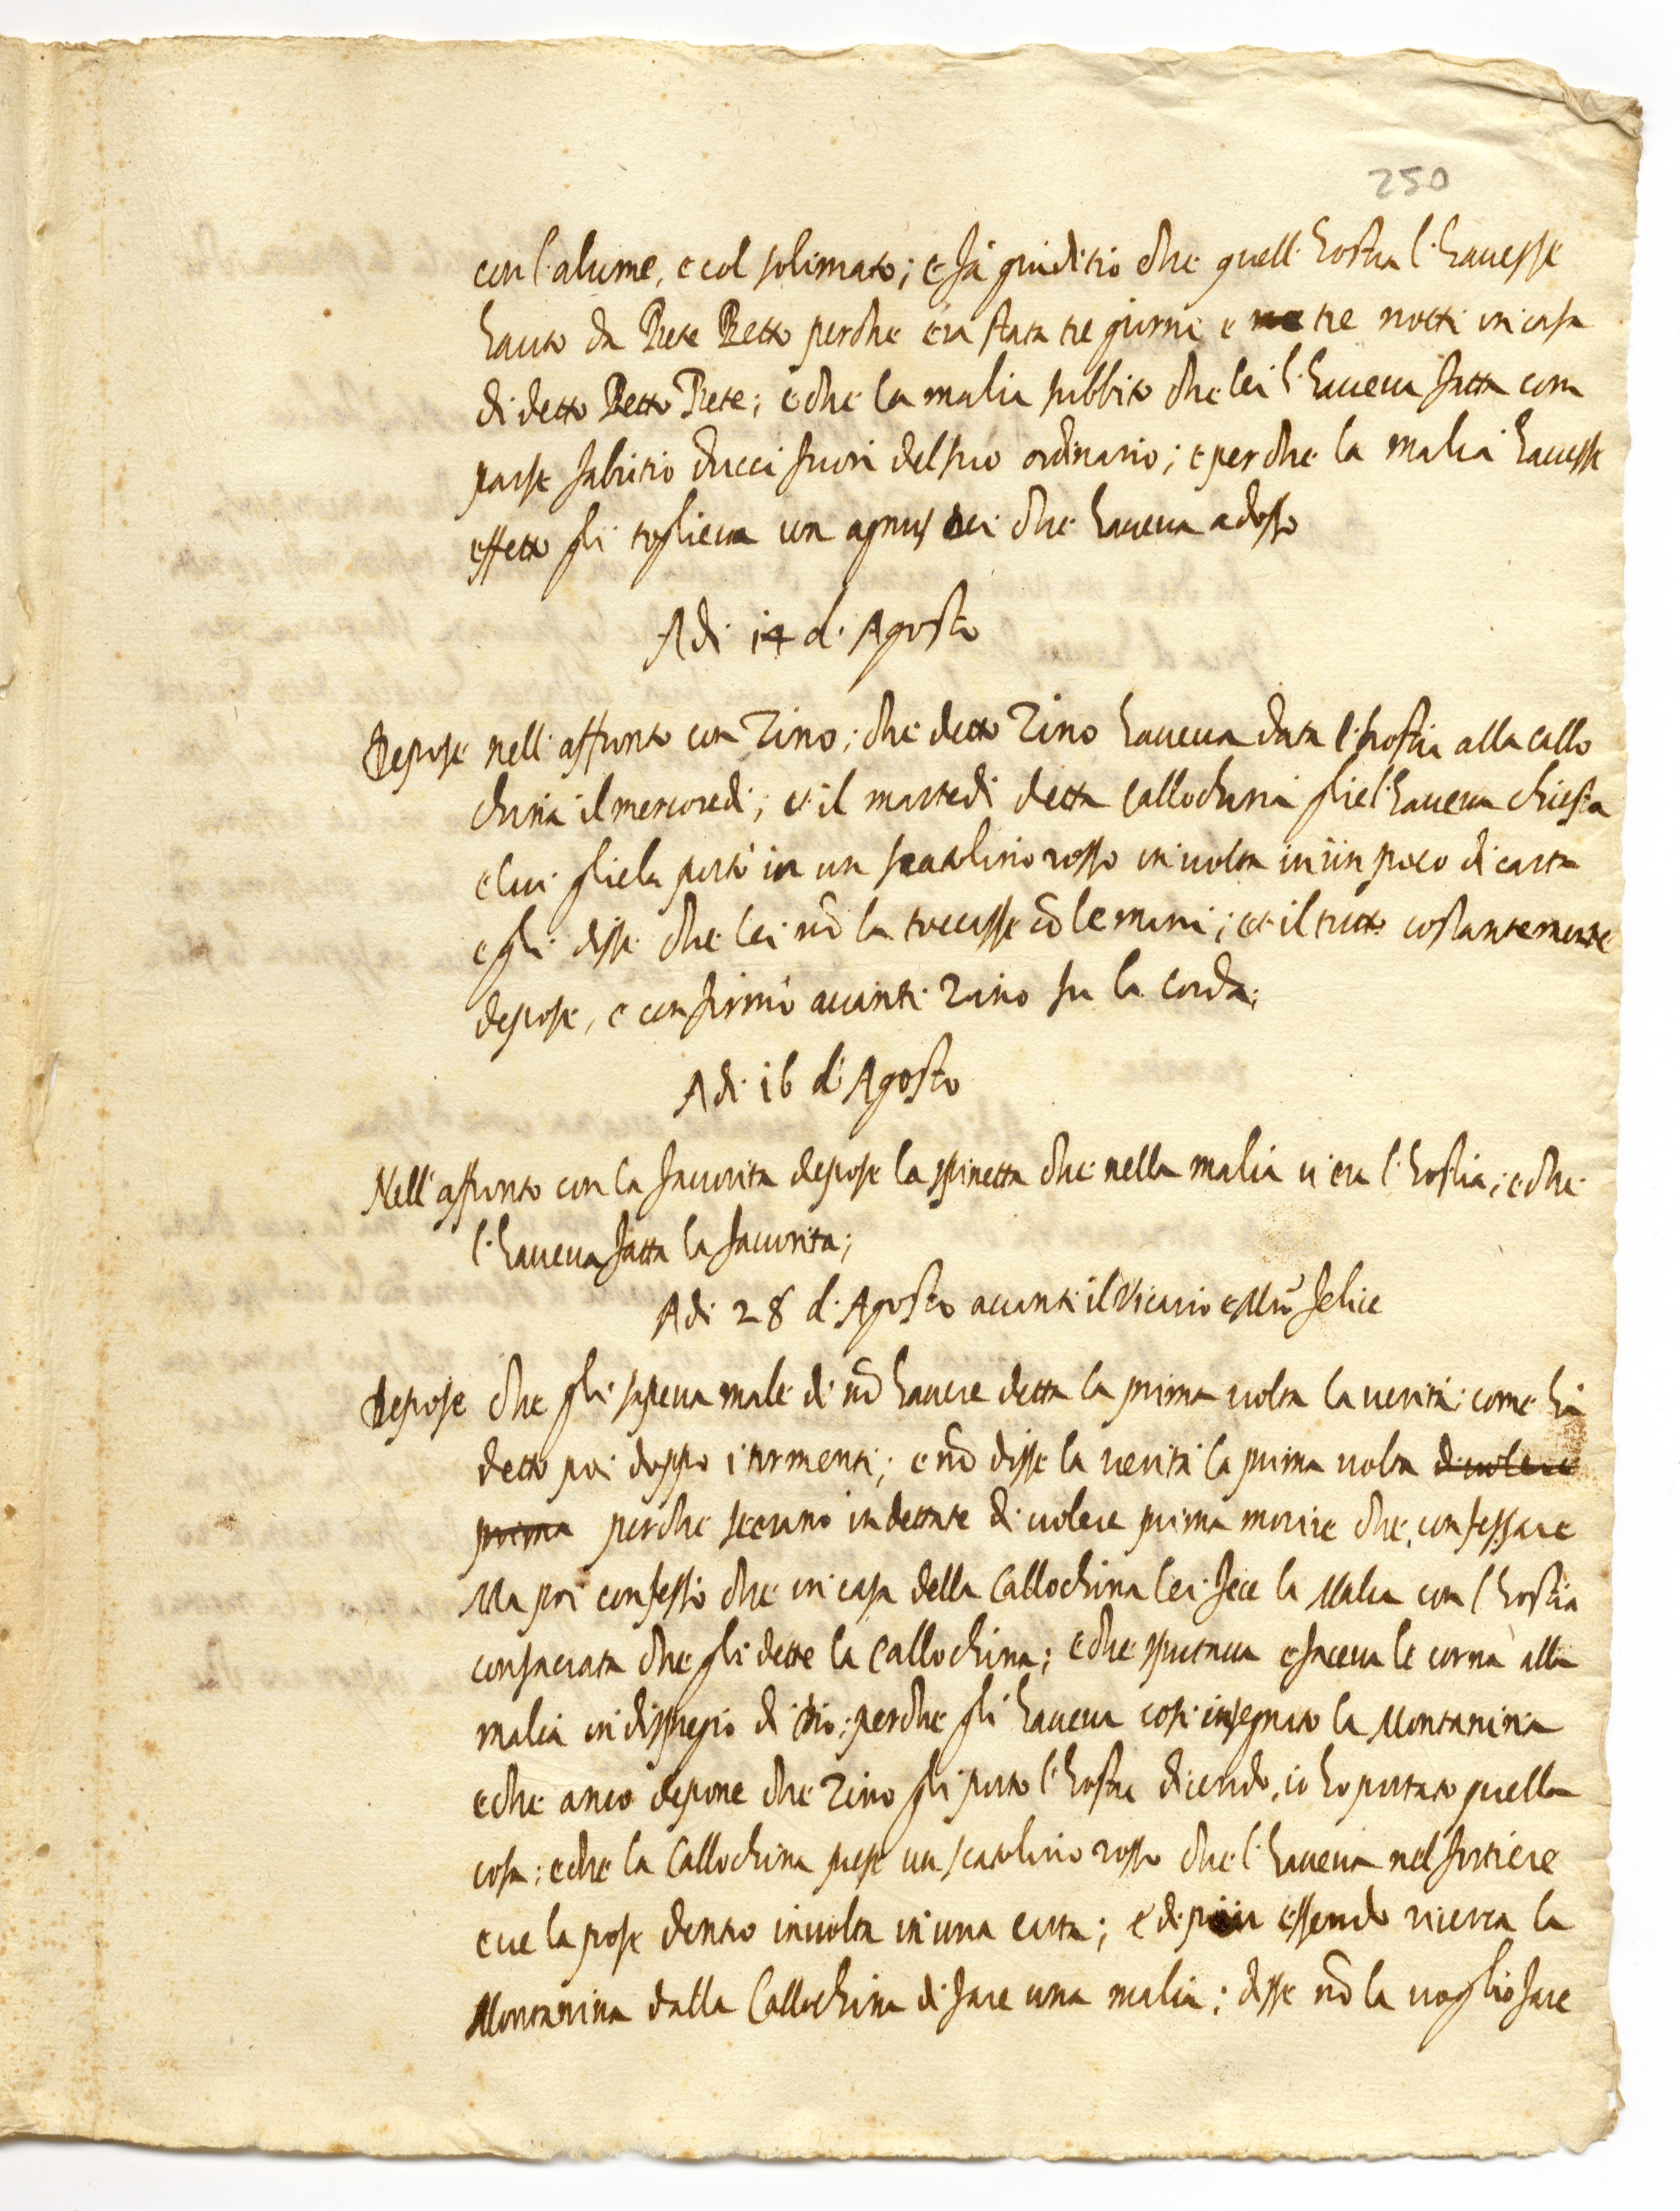 250
con l'alume, e col solimato; e fà giuditio che quell'hostia l'havesse
hauto da Prete Betto perche era stata tre giorni e tre notti in casa
di detto Betto Prete; e che la malia subbito che lei l'haveva fatta com
parse fabritio ducci fuori del suo ordinario; e perche la malia havesse
effetto gli toglieva un agnus dei che haveva adosso
Adi 14 d'Agosto
Depose nell'affronto con Zino; che detto Zino haveva data l'hostia alla callo
china il mercoredi; et il martedi detta Callochina gliel'haveva chiesta
e lui gliela portò in un scatolino rosso involta in un poco di carta
e gli disse che lei nō la toccasse cō le mani; et il tutto costantemente
depose, e confirmò avanti Zino su la corda;
Adi 16 d'Agosto
Nell'affronto con la favorita depose la spinetta che nella malia vi era l'hostia; e che
l'haveva fatta la favorita;
Adi 28 d'Agosto avanti il Vicario e Mrō felice
Depose che gli sapeva male di nō havere detta la prima volta la verità come hà
detto poi doppo i tormenti; e nō disse la verità la prima volta di volere
prima perche s'erano indettate di volere prima morire che confessare
Ma poi confessò che in casa della Callochina lei fece la Malia con l'hostia
consacrata che gli dette la Callochina; e che sputava e faceva le corna alla
malia in dispregio di Dio; perche gli haveva cosi insegnato la Montanina
e che anco depone che Zino gli portò l'hostia dicendo, io ho portato quella
cosa; e che la Callochina prese un scatolino rosso che l'haveva nel forziere
e ve la pose dentro involta in una carta; e di più essendo ricerca la
Montanina dalla Callochina di fare una malia; disse nō la voglio fare